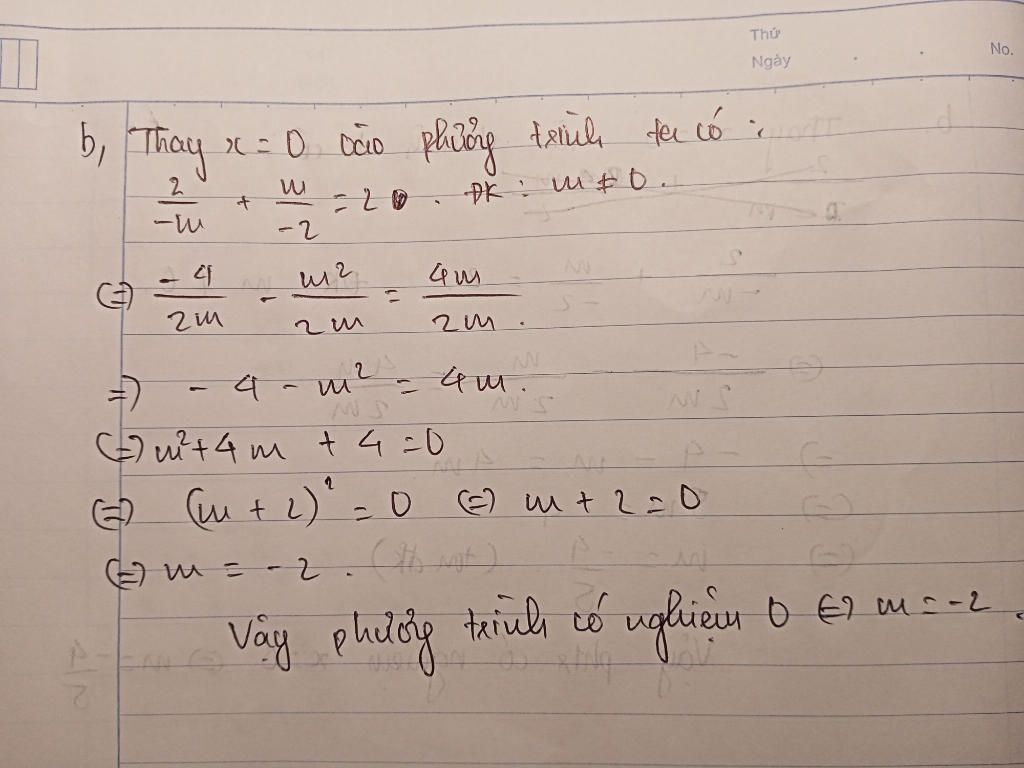 Thứ
Ngày
No.
b, Thay x = 0 vào phương trình ta có :
2/-m + m/-2 = 2 . ĐK : m ≠ 0 .
(=) -4/2m - m²/2m = 4m/2m .
=) - 4 - m² = 4m .
(=) m² + 4m + 4 = 0
(=) (m + 2)² = 0 (=) m + 2 = 0
(=) m = -2 .
Vậy phương trình có nghiệm 0 (=) m = -2 .